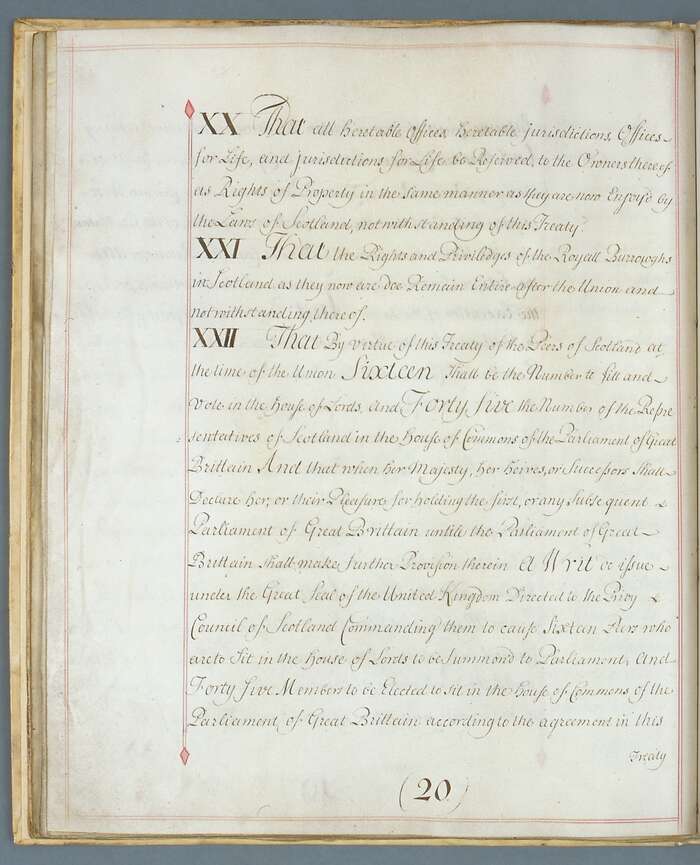 XX That all heretable Offices, heretable jurisdictions, Offices
for Life, and jurisdictions for Life be Reserved to the Owners thereof
as Rights of Property in the same manner as they are now Enjoy'd by
the Laws of Scotland, notwithstanding of this Treaty.
XXI That the Rights and Priviledges of the Royall Burrowghs
in Scotland as they now are Doe Remain Entire after the Union and
notwithstanding thereof.
XXII That By virtue of this Treaty of the Peers of Scotland at
the time of the Union Sixteen Shall be the Number to sitt and
Vote in the House of Lords, and Forty five the Number of the Repre
sentatives of Scotland in the House of Commons of the Parliament of Great
Brittain And that when her Majesty, her heires, or Successors Shall
Declare her, or their Pleasure for holding the first, or any Subsequent
Parliament of Great Brittain untill the Parliament of Great
Brittain shall make further Provision therein A Writ do issue
under the Great Seal of the United Kingdom Directed to the Privy
Council of Scotland Commanding them to cause Sixteen Peers who
are to Sit in the House of Lords to be Summond to Parliament, and
Forty five Members to be Elected to sit in the House of Commons of the
Parliament of Great Brittain according to the agreement in this
Treaty
(20)